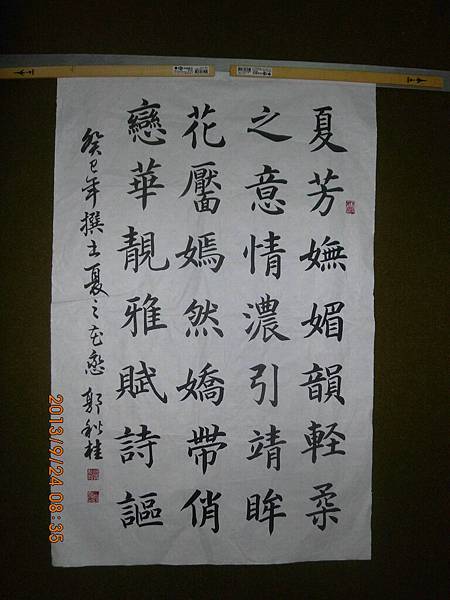 夏芳嫵媚韻輕柔
之意情濃引靖眸
花靨嫣然嬌帶俏
戀華靚雅賦詩謳
癸巳年撰書夏之花戀 郭秋桂
2013/9/24 08:35